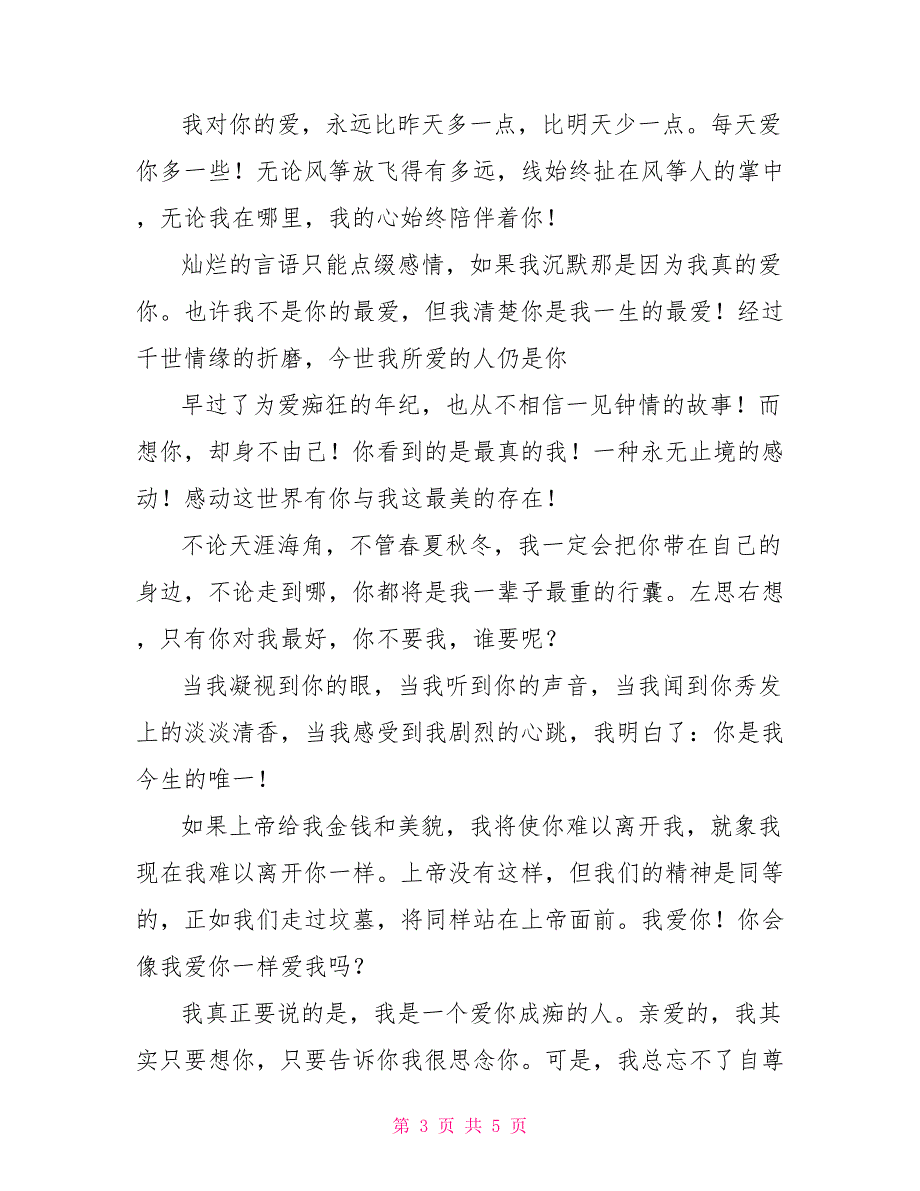 我对你的爱，永远比昨天多一点，比明天少一点。每天爱
你多一些！无论风筝放飞得有多远，线始终扯在风筝人的掌中
，无论我在哪里，我的心始终陪伴着你！
灿烂的言语只能点缀感情，如果我沉默那是因为我真的爱
你。也许我不是你的最爱，但我清楚你是我一生的最爱！经过
千世情缘的折磨，今世我所爱的人仍是你
早过了为爱痴狂的年纪，也从不相信一见钟情的故事！而
想你，却身不由己！你看到的是最真的我！一种永无止境的感
动！感动这世界有你与我这最美的存在！
不论天涯海角，不管春夏秋冬，我一定会把你带在自己的
身边，不论走到哪，你都将是我一辈子最重的行囊。左思右想
，只有你对我最好，你不要我，谁要呢？
当我凝视到你的眼，当我听到你的声音，当我闻到你秀发
上的淡淡清香，当我感受到我剧烈的心跳，我明白了：你是我
今生的唯一！
如果上帝给我金钱和美貌，我将使你难以离开我，就象我
现在我难以离开你一样。上帝没有这样，但我们的精神是同等
的，正如我们走过坟墓，将同样站在上帝面前。我爱你！你会
像我爱你一样爱我吗？
我真正要说的是，我是一个爱你成痴的人。亲爱的，我其
实只要想你，只要告诉你我很思念你。可是，我总忘不了自尊
第 3 页 共 5 页